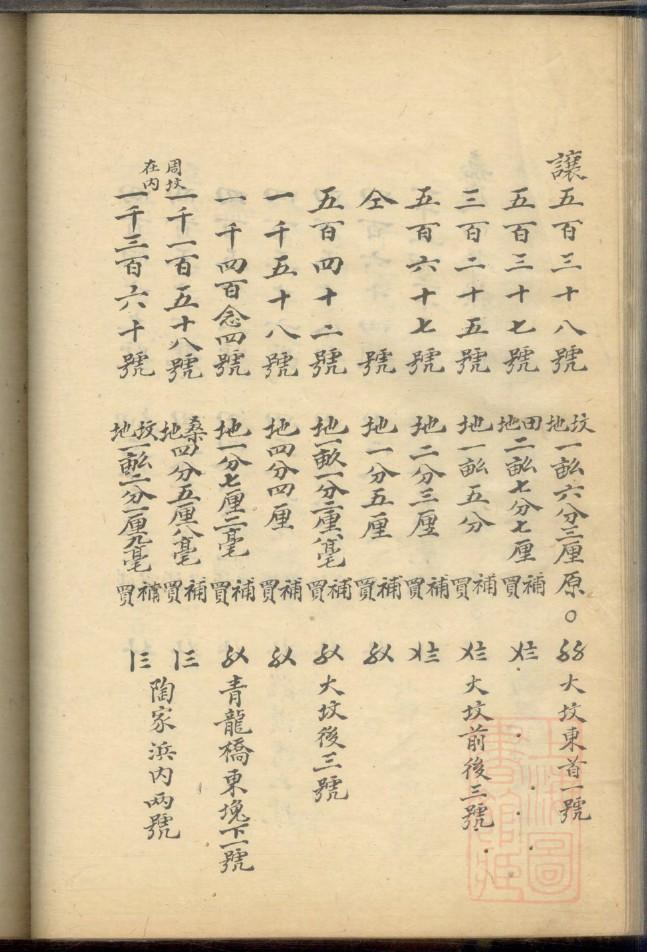 讓五百三十八號 坟地一畝六分三厘 原 〇 〥〥 大坟東首一號
五百三十七號 田地二畝七分七厘 補買
三百二十五號 地一畝五分 補買 大坟前後三號
五百六十七號 地二分三厘 補買
仝 號 地一分五厘 補買
五百四十二號 地一畝一分二厘八毫 補買 大坟後三號
一千五十八號 地四分四厘 補買
一千四百念四號 地一分七厘二毫 補買 青龍橋東塊下一號
周坟在内
一千一百五十八號 桑地四分五厘八毫 補買
一千三百六十號 坟地一畝二分一厘九毫 補買
陶家浜内两號
圖書館